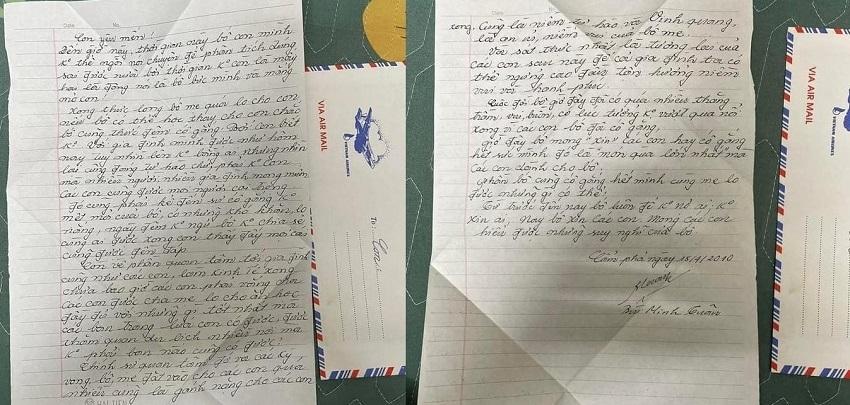 Date
No
Con yêu mến!
Đến giờ này, thời gian này bố con mình
K° thể ngồi nói chuyện để phân tích đúng
sai được nữa bởi thời gian K° còn là mấy
hay là đồng nói là bố bực mình và mắng
mỏ con.
Xong thực lòng bố mẹ quá lo cho con
nếu bố có thể học thay cho con chắc
bố cũng thức đêm cố gắng. Bởi con biết
K° Với gia đình mình được như hôm
nay tuy nhìn lên K° bằng ai, nhưng nhìn
lại cũng đáng tự hào chứ phải K° con.
mà nhiều người nhiều gia đình mong muốn
các con cũng được mọi người coi trọng.
Để cũng phải kể đến sự cố gắng K°
mệt mỏi của bố, có những khó khăn lo
nắng, ngày đêm K° ngủ bố K° chia sẻ
cùng ai được xong con thấy đấy mọi cái
cũng được đền đáp.
Còn về phần quan tâm tới gia đình
cũng như các con, làm kinh tế xong
chưa bao giờ các con phải vắng cha
Các con được cha mẹ lo cho ăn học
đầy đủ với những gì tốt nhất mà
các bạn trang lứa con có được, được
thăm quan du lịch nhiều nơi mà
K° phải bạn nào cũng có được!
Chính sự quan tâm đó và các kỳ
vọng bố, mẹ đặt vào cho các con quá
nhiều cũng là gánh nặng cho các con
HẢI TIẾN
VIA AIR MAIL
VIETNAM AIRLINES
TO:
Date
No
xong. Cũng là niềm tự hào và Vinh quang,
là an ủi, niềm vui của bố mẹ.
Và sát thực nhất là tương lai của
các con sau này để cả gia đình ta có
thể ngửng cao đầu tận hưởng niềm
vui và hạnh phúc.
Cuộc đời bố giờ đây đã có quá nhiều thăng
trầm, vui buồn, có lúc tưởng K° vượt qua nổi
xong vì các con bố đã cố gắng.
giờ đây bố mong "xin" các con hãy cố gắng
hết sức mình đó là món quà lớn nhất mà
các con dành cho bố.
phần bố cũng cố gắng hết mình cùng mẹ lo
được những gì có thể.
Từ trước đến nay bố luôn để K° nợ ai, K°
xin ai, Nay bố xin các con. Mong các con
hiểu được những suy nghĩ của bố
Cẩm phả ngày 15/4/2010
Bùi Minh Tuân
VIA AIR MAIL